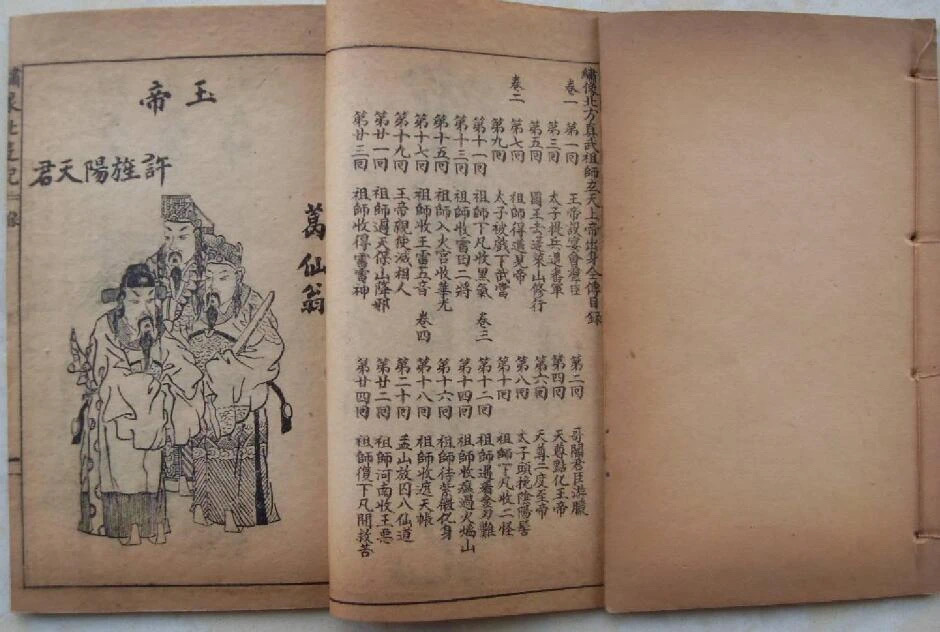 繡像北方真武祖師玄天上帝出身全傳目錄
卷一
第一回 玉帝設宴會羣臣
第二回 哥閣君臣遊獵
第三回 太子提兵退番軍
第四回 天尊點化王帝
第五回 國王去蓬萊山修行
第六回 天尊二度至帝
卷二
第七回 祖師得道見帝
第八回 太子頭挽陰陽髻
第九回 太子被戲下武當
第十回 祖師下凡收二怪
第十一回 祖師下凡收黑氣
卷三
第十二回 祖師遇
第十三回 祖師收雷田二將
第十四回 祖師收瘟過火焰山
第十五回 祖師入火宮收華光
第十六回 祖師待紫微化身
第十七回 祖師收王雷五音
卷四
第十八回 祖師收遮天帳
第十九回 王帝親使滅相人
第二十回 孟山放囚入仙道
第廿一回 祖師過天保山降邪
第廿二回 祖師河南收王惡
第廿三回 祖師收得雷雷神
第廿四回 祖師復下凡間救苦
葛仙翁
玉帝
許旌陽天君
繡像北遊記